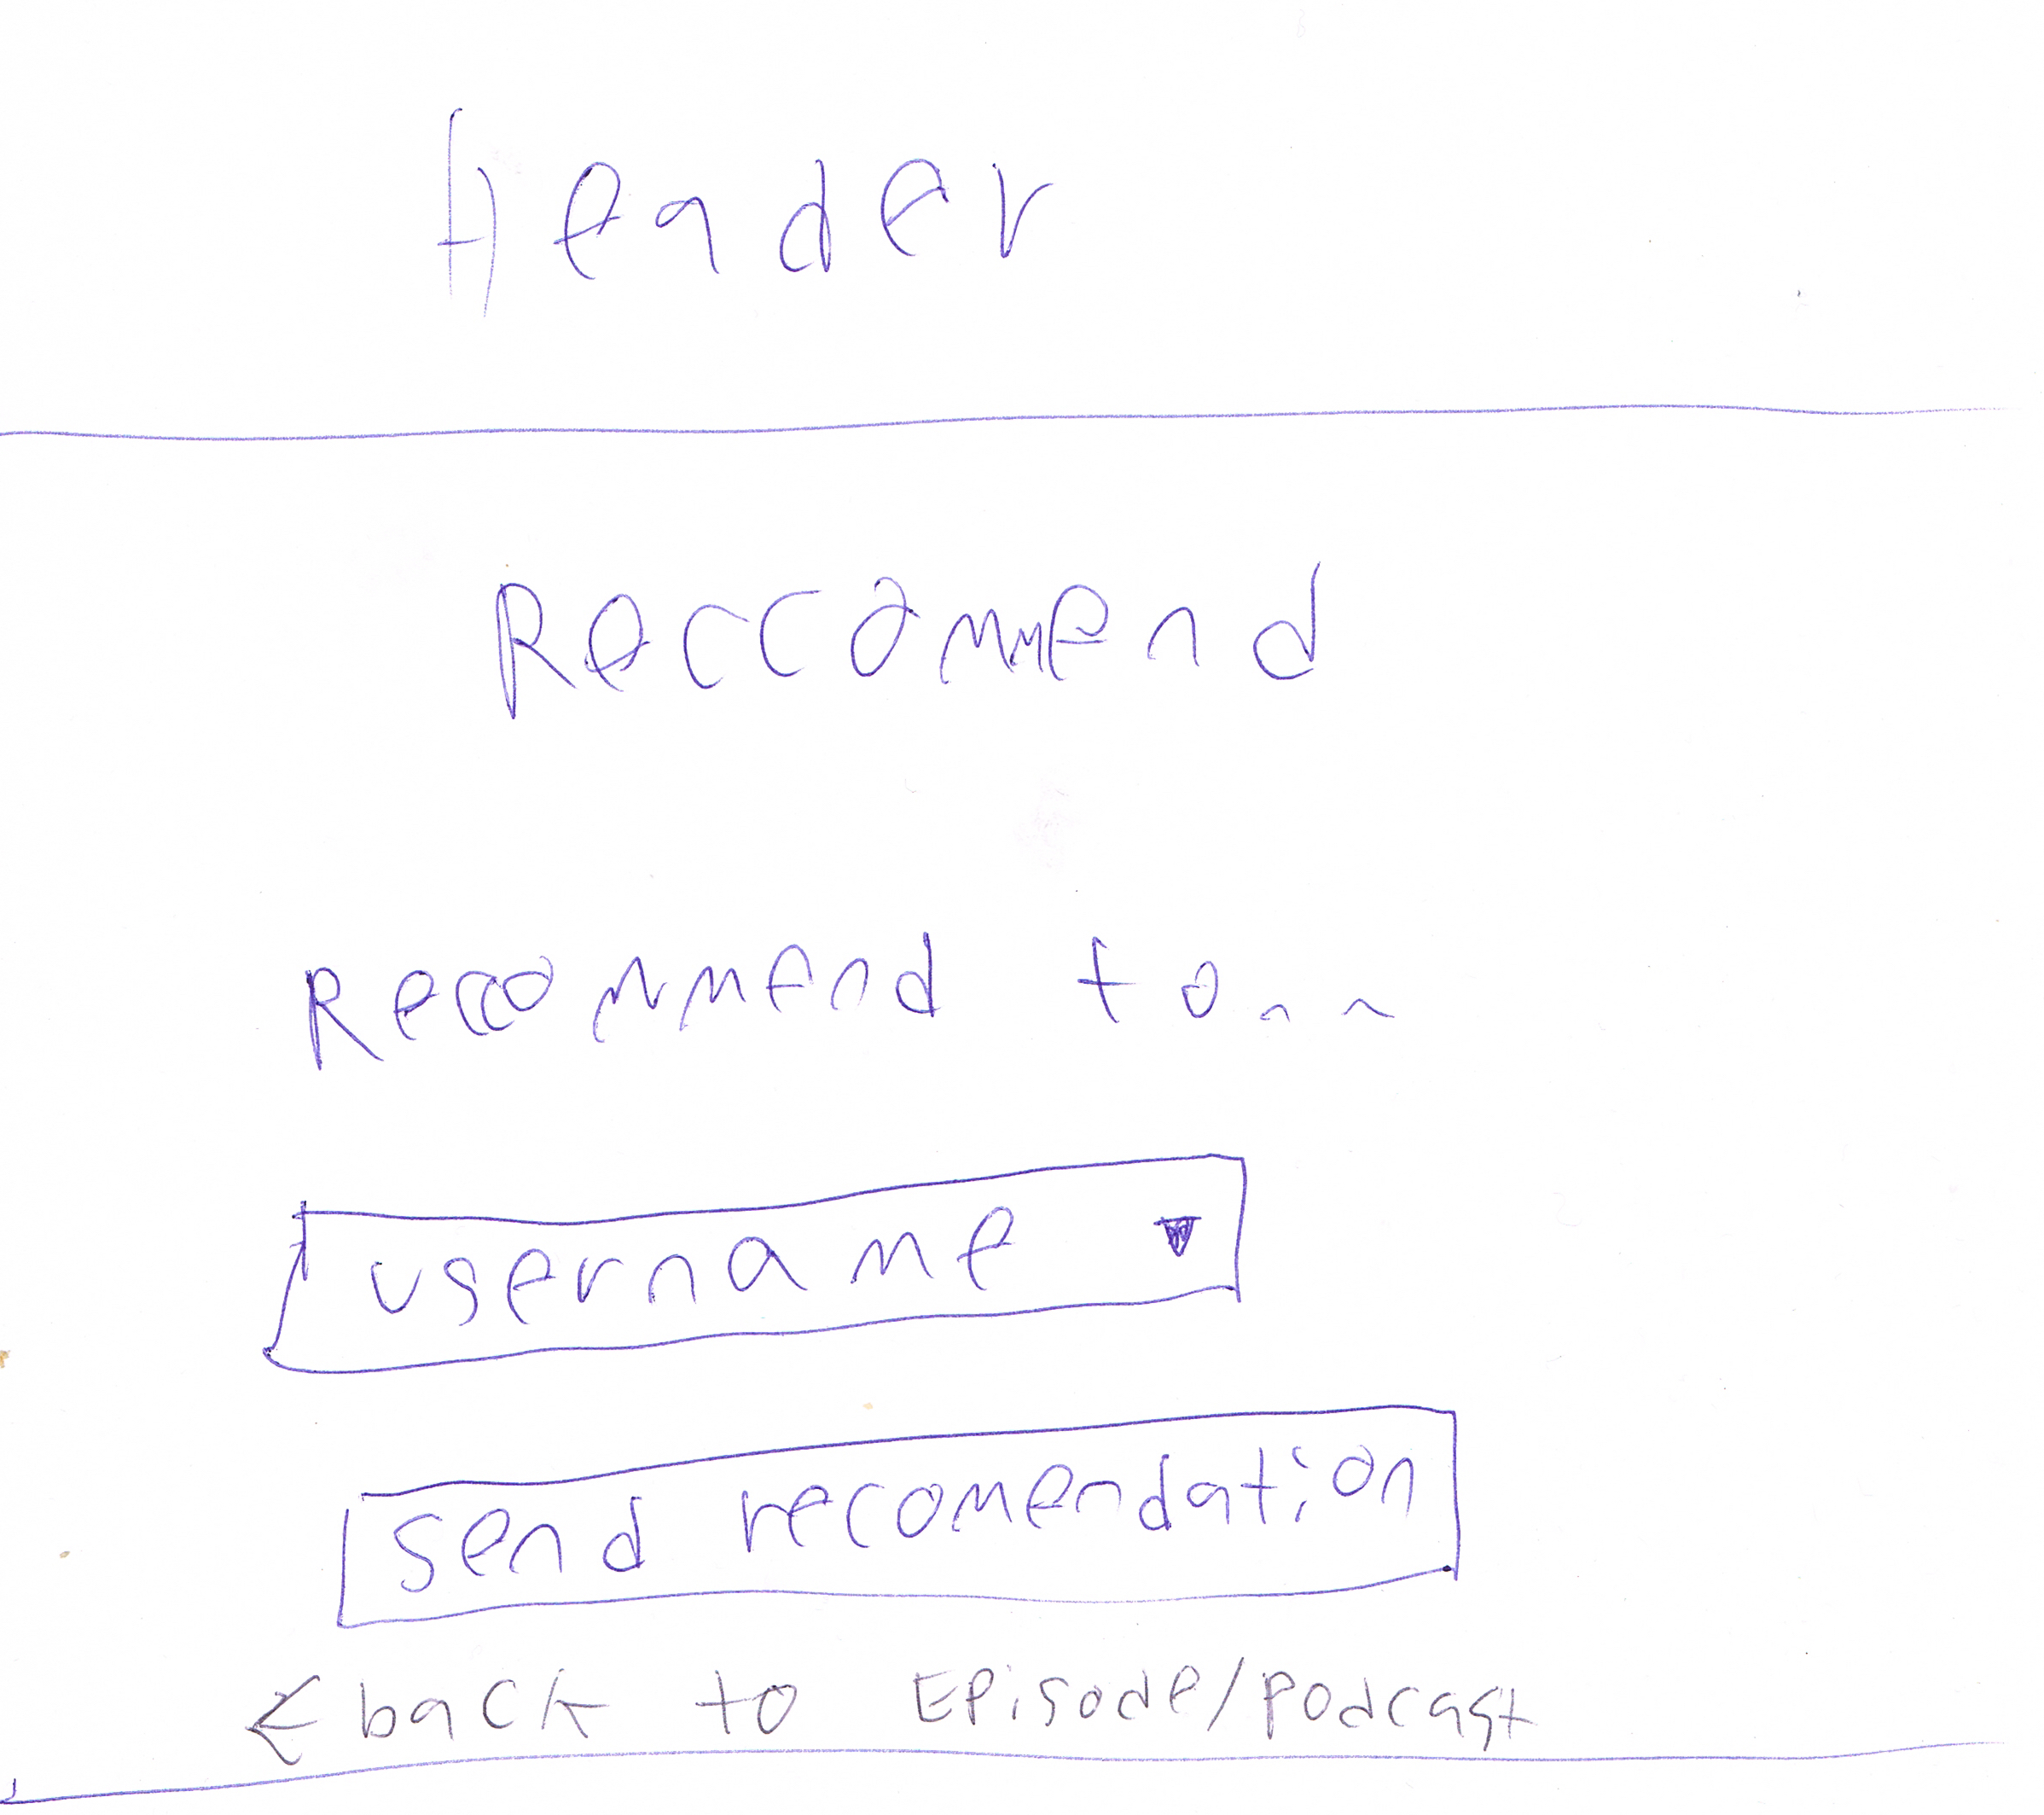 Header
Reccommend
Reccommend to..
username
send recomendation
<back to Episode/podcast